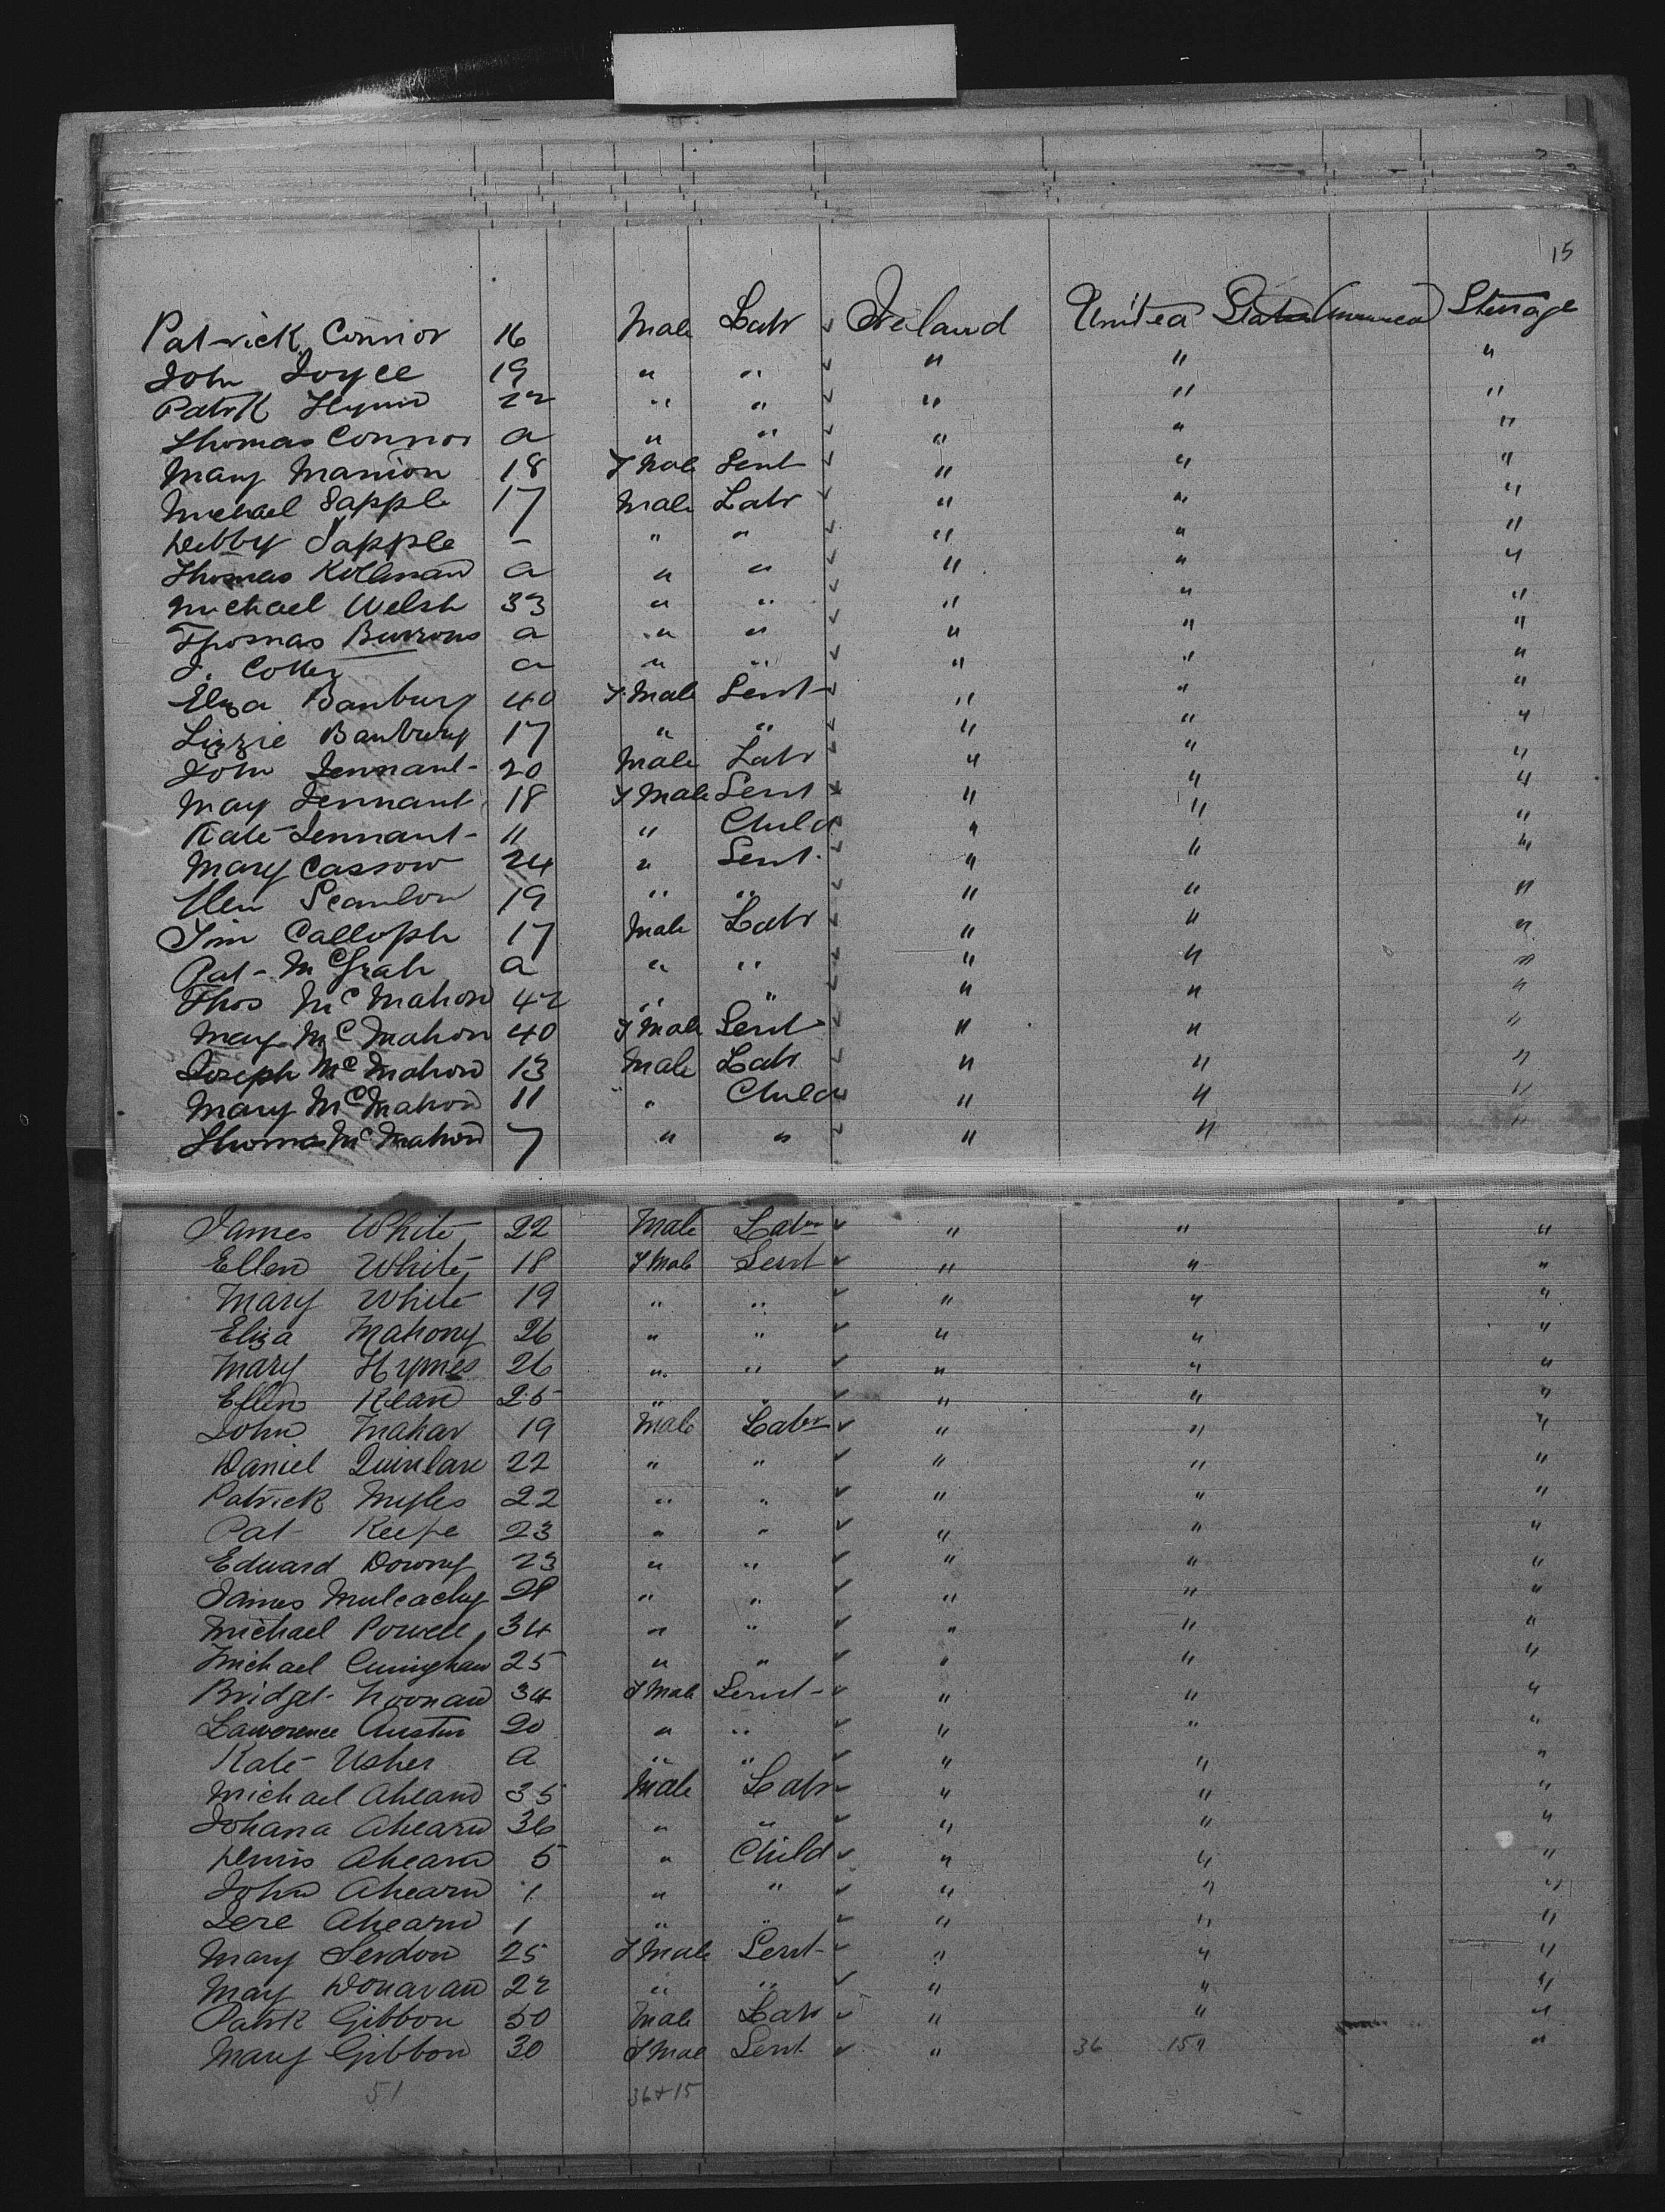 15
Patrick Connor 16 Male Labr Ireland United States America Sterage
John Joyce 19 " " " " "
Patrk Flynn 22 " " " " "
Thomas Connor a " " " " "
Mary Manion 18 F Male Servt " " "
Michael Sapple 17 Male Labr " " "
Debby Sapple – " " " " "
Thomas a " " " " "
Michael Welsh 33 " " " " "
Thomas Burrows a " " " " "
J. a " " " " "
Eliza Banbury 40 F Male Servt " " "
Lizzie Banbury 17 " " " " "
John Tennant 20 Male Labr " " "
May Tennant 18 F Male Servt " " "
Kate Tennant 11 " Child " " "
Mary Cassow 24 " Servt " " "
Ellen Scanlon 19 " " " " "
Tim Calloph 17 Male Labr " " "
Pat McGrah a " " " " "
Thos McMahon 42 " " " " "
Mary McMahon 40 F Male Servt " " "
Joseph McMahon 13 Male Labr " " "
Mary McMahon 11 " Child " " "
Thomas McMahon 7 " " " " "
James White 22 Male Labr " " "
Ellen White 18 F Male Servt " " "
Mary White 19 " " " " "
Eliza Mahony 26 " " " " "
Mary Hymes 26 " " " " "
Ellen Kean 25 " " " " "
John Mahar 19 Male Labr " " "
Daniel Quinlan 22 " " " " "
Patrick Myles 22 " " " " "
Pat Keefe 23 " " " " "
Edward Downy 23 " " " " "
James Mulcachy 28 " " " " "
Michael Powell 34 " " " " "
Michael Cuningham 25 " " " " "
Bridget Noonan 34 F Male Servt " " "
Lawerence Austin 20 " " " " "
Kate Usher a " " " " "
Michael Ahearn 35 Male Labr " " "
Johana Ahearn 36 " " " " "
Denis Ahearn 5 " Child " " "
John Ahearn 1 " " " " "
Jere Ahearn 1 " " " " "
Mary 25 F Male Servt " " "
May Donavan 22 " " " " "
Patrk Gibbon 50 Male Labr " " "
Mary Gibbon 30 F Mal Servt " 36 159 "
51 36+15